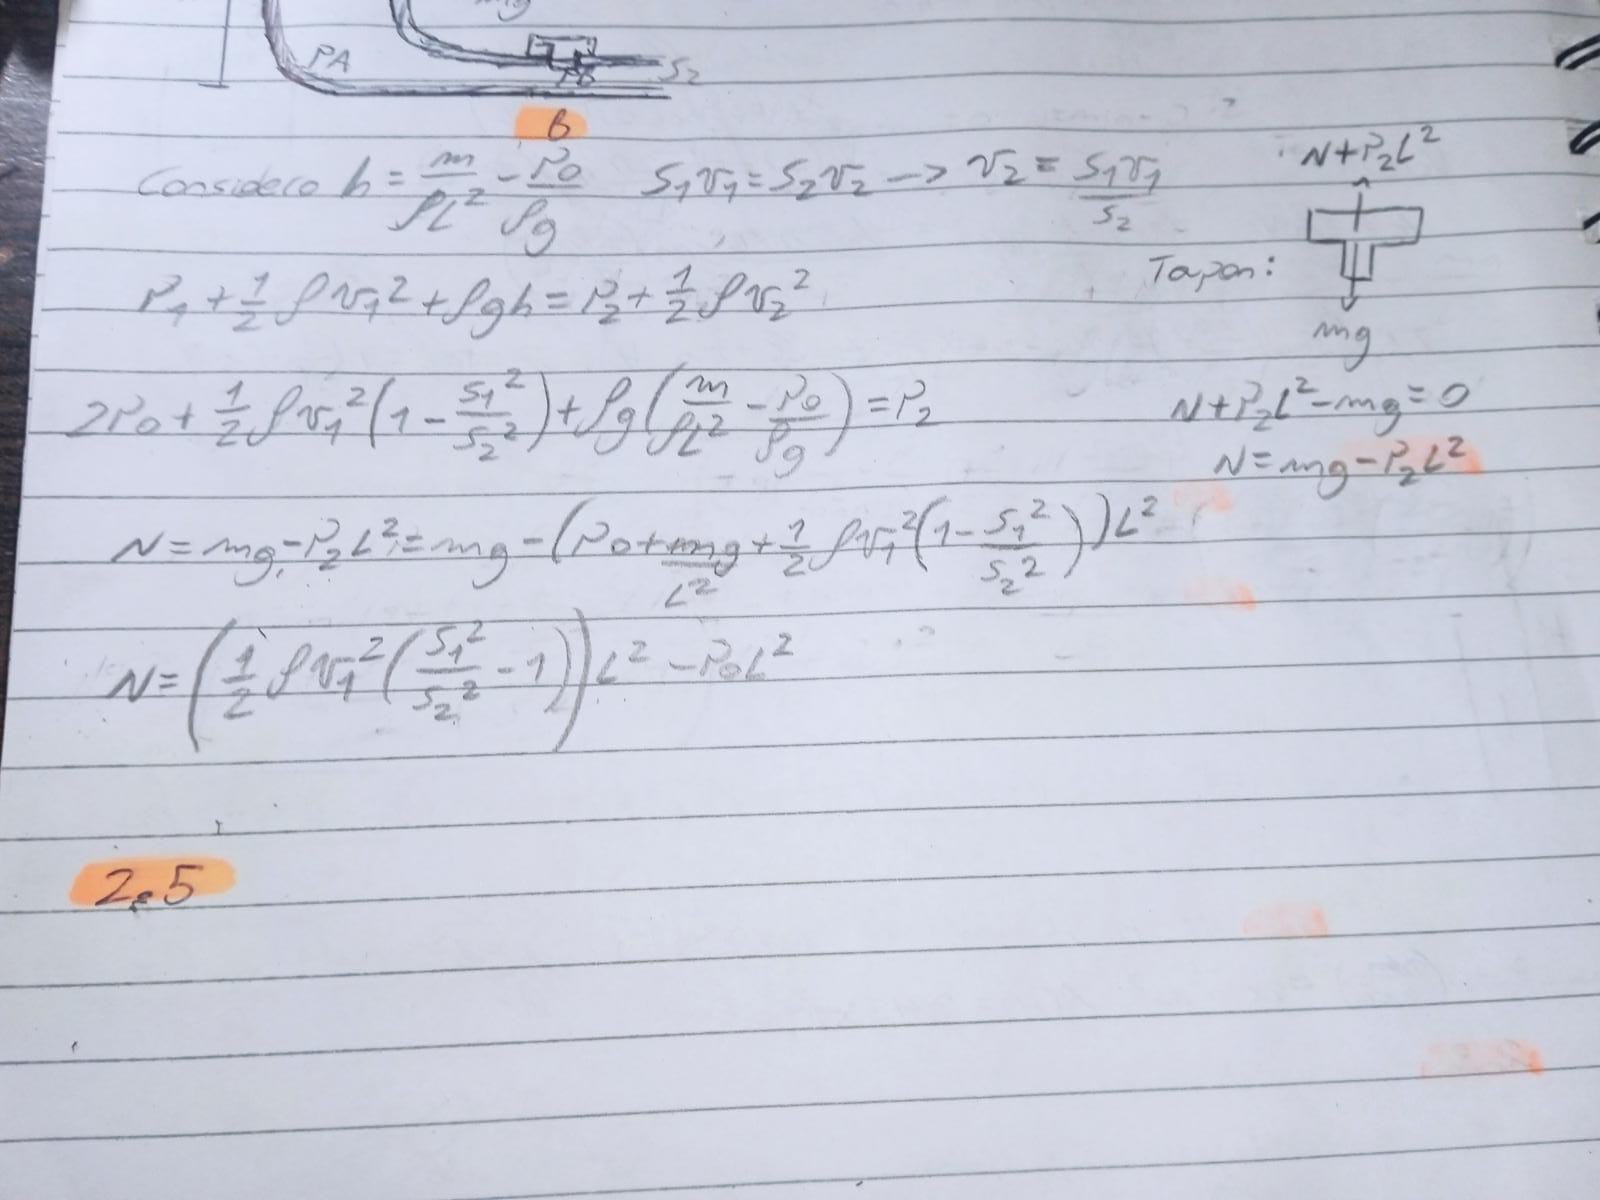 mg
PA
PB
S₂
b
Considero h = m/ρL² - P₀/ρg   S₁v₁ = S₂v₂ → v₂ = S₁v₁/S₂
N+P₂L²
Tapon:
mg
P₁ + 1/2 ρv₁² + ρgh = P₂ + 1/2 ρv₂²
2P₀ + 1/2 ρv₁² (1 - S₁²/S₂²) + ρg (m/ρL² - P₀/ρg) = P₂
N+P₂L²-mg=0
N=mg-P₂L²
N = mg - P₂L² = mg - (P₀ + mg/L² + 1/2 ρv₁² (1 - S₁²/S₂²)) L²
N = (1/2 ρv₁² (S₁²/S₂² - 1)) L² - P₀L²
2.5